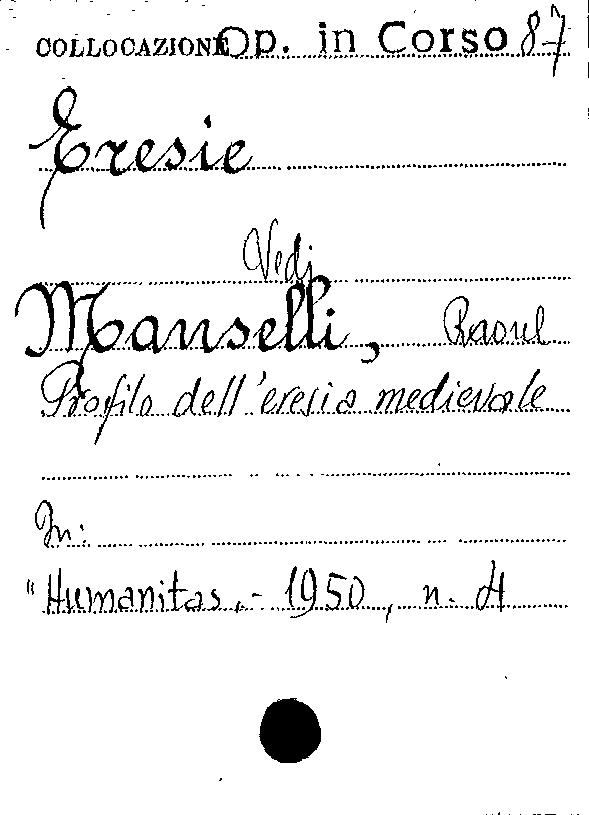 COLLOCAZIONE Op. in Corso 87
Eresie
Vedi
Manselli, Raoul
Profilo dell'eresia medievale
In:
"Humanitas.- 1950, n. 4